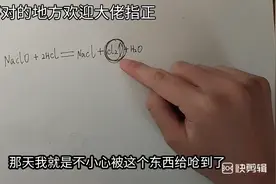 对的地方欢迎大佬指正
NaClO + 2HCl = NaCl + Cl₂↑ + H₂O
那天我就是不小心被这个东西给呛到了
快剪辑